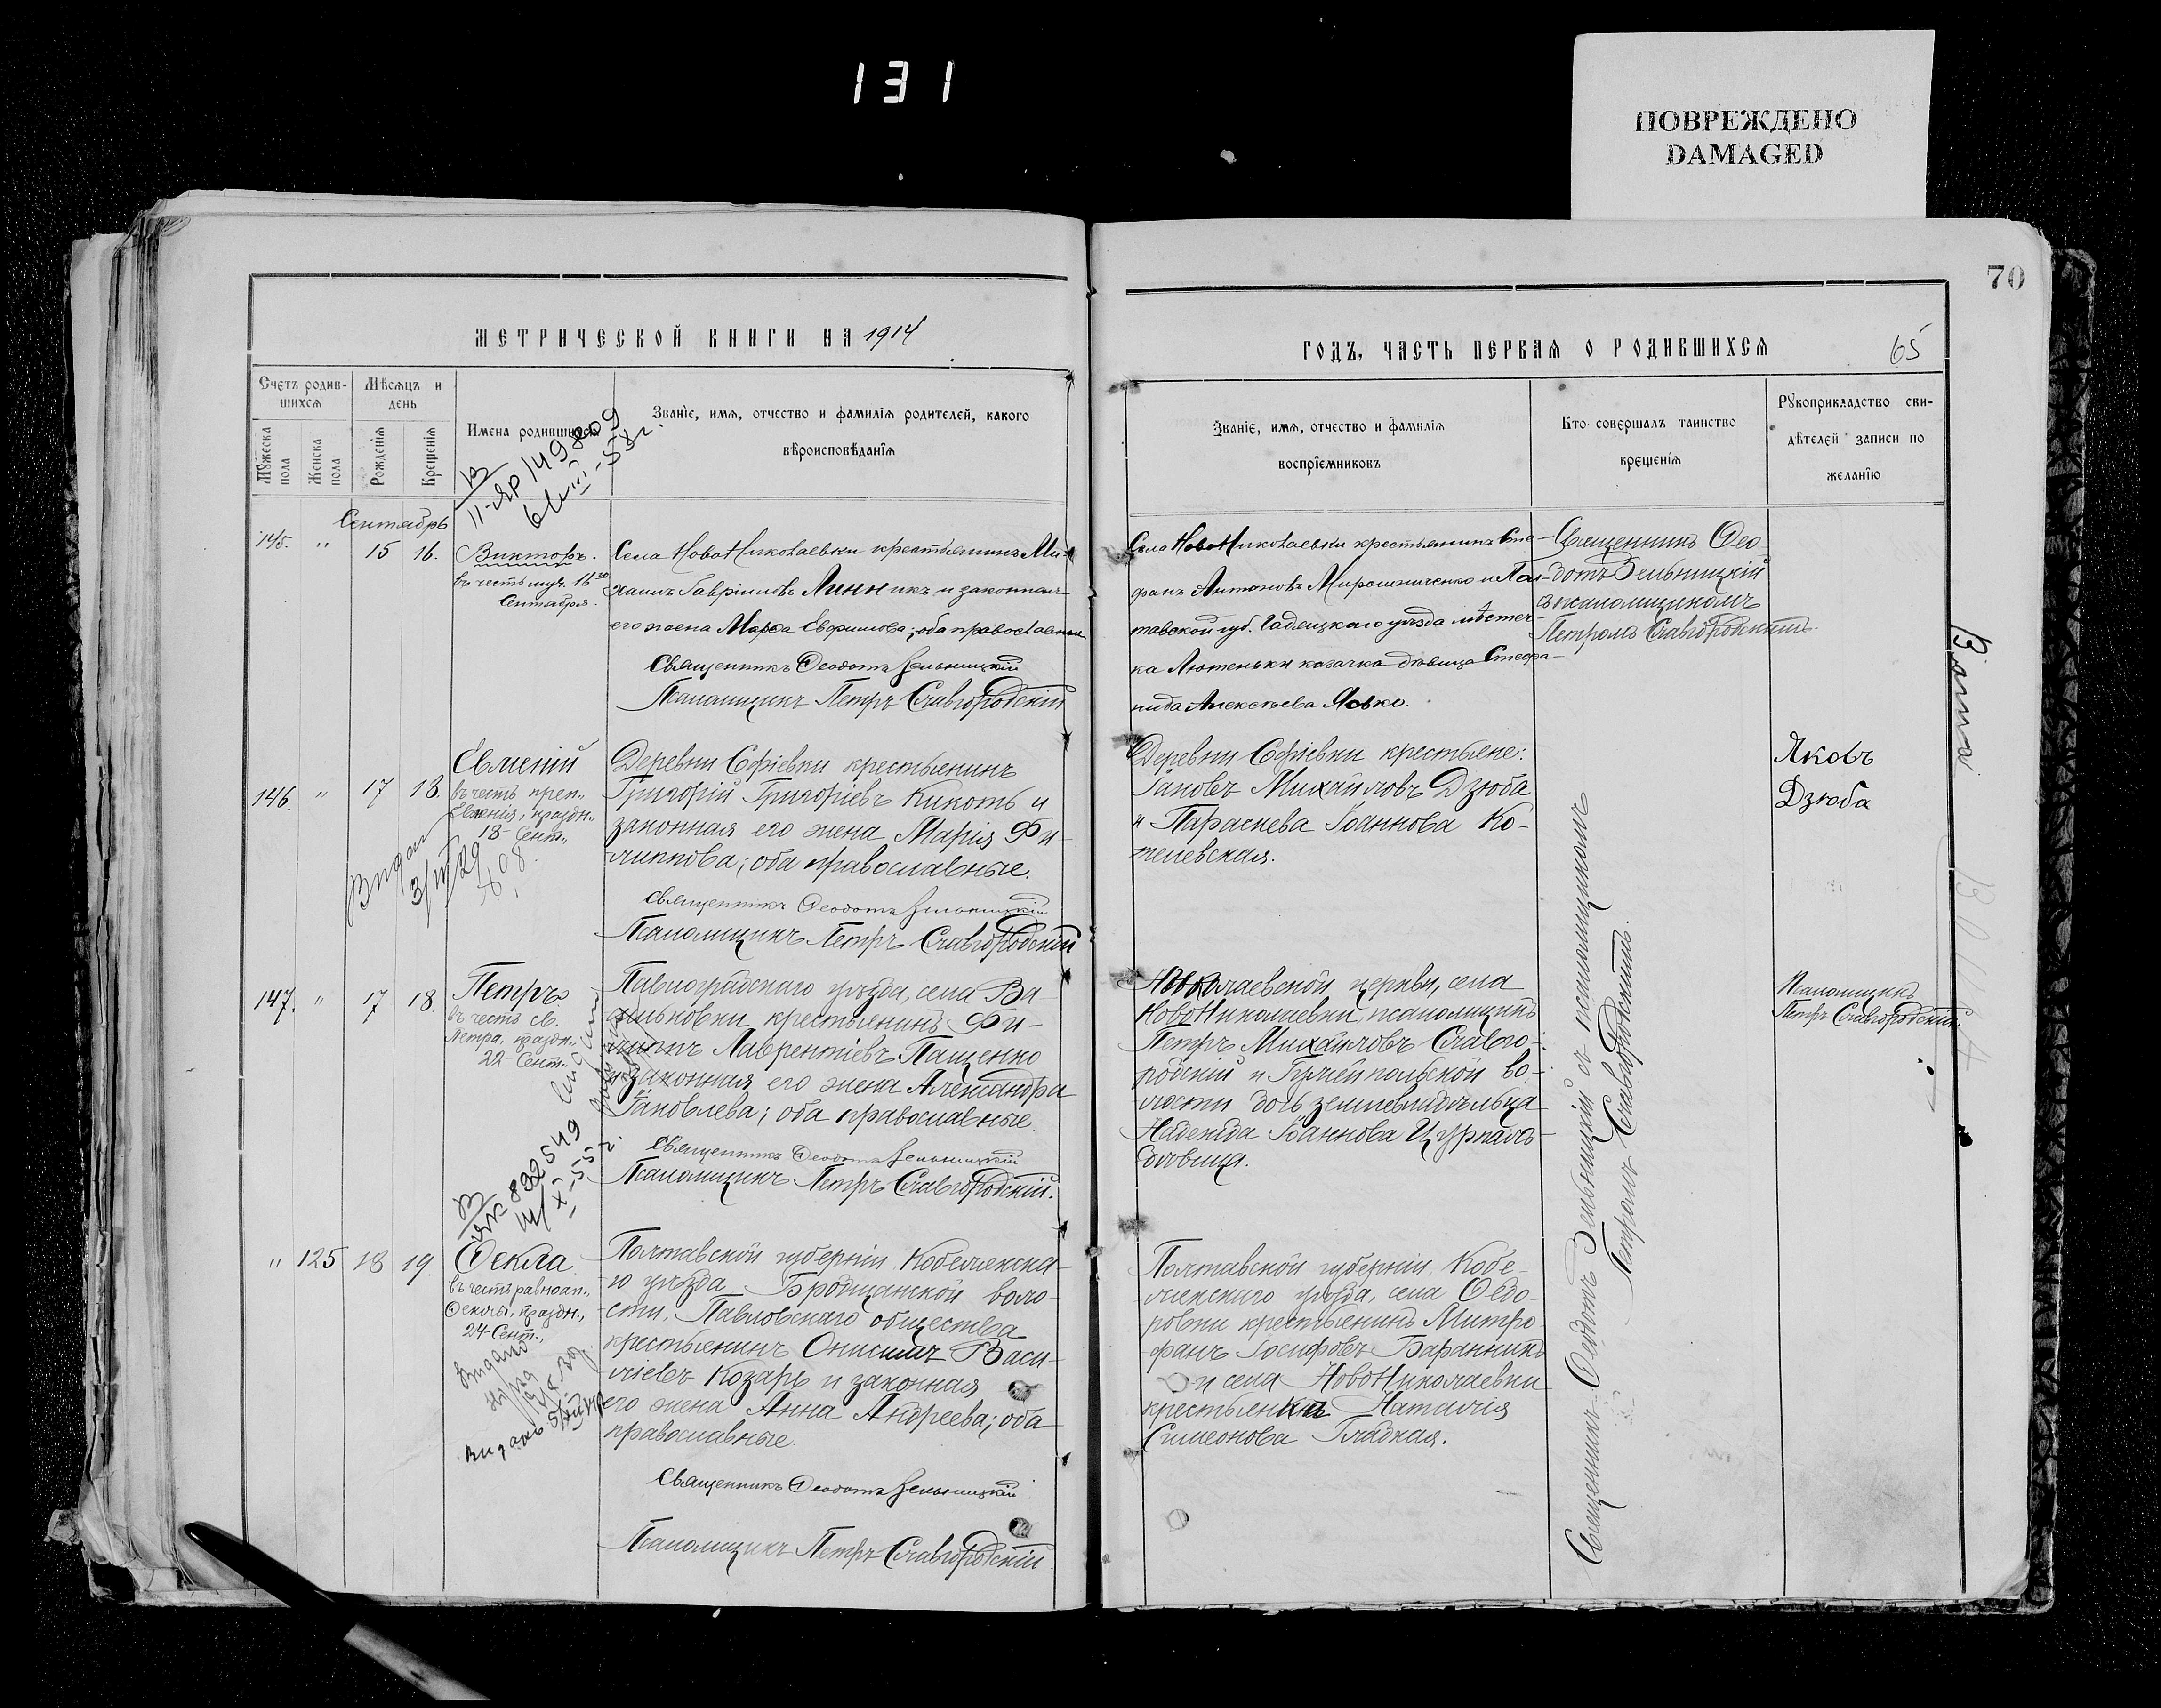 131
ПОВРЕЖДЕНО
DAMAGED
70
МЕТРИЧЕСКОЙ КНИГИ НА 1914
ГОДЪ, ЧАСТЬ ПЕРВАЯ О РОДИВШИХСЯ
65
Счетъ родив-
шихся
Мѣсяцъ и
день
Мужеска
пола
Женска
пола
Рожденія
Крещенія
Имена родившихся
Званіе, имя, отчество и фамилія родителей, какого
вѣроисповѣданія
Званіе, имя, отчество и фамилія
воспріемниковъ
Кто совершалъ таинство
крещенія
Рукоприкладство сви-
дѣтелей записи по
желанію
Сентябрь
145. " 15 16.
Викторъ.
въ честь муч. 16го
Сентября.
Села НовоНиколаевки крестьянинъ Ми-
хаилъ Гавріиловъ Линникъ и законная
его жена Марѳа Евфимова; оба православные
Священникъ Ѳеодотъ Зельницкій
Псаломщикъ Петръ Славгородскій
Села НовоНиколаевки крестьянинъ Сте-
фанъ Антоновъ Мирошниченко и Пол-
тавской губ. Гадяцкаго уѣзда мѣстеч-
ка Лютеньки козачка дѣвица Стефа-
нида Алексѣева Ясько.
Священникъ Ѳео-
дотъ Зельницкій
съ псаломщикомъ
Петромъ Славгородскимъ.
146. " 17 18.
Евменій
въ честь преп.,
Евменія, праздн.,
18 Сент.,
Деревни Софіевки крестьянинъ
Григорій Григоріевъ Кикоть и
законная его жена Марія Фи-
липпова; оба православные.
Священникъ Ѳеодотъ Зельницкій
Псаломщикъ Петръ Славгородскій
Деревни Софіевки крестьяне:
Іаковъ Михайловъ Дзюба
и Параскева Іоаннова Ко-
телевская.
Яковъ
Дзюба
147. " 17 18.
Петръ
въ честь св.
Петра, праздн.,
22 Сент.,
Павлоградскаго уѣзда, села Ва-
сильковки крестьянинъ Фи-
липпъ Лаврентіевъ Пащенко
и законная его жена Александра
Іаковлева; оба православные.
Священникъ Ѳеодотъ Зельницкій
Псаломщикъ Петръ Славгородскій.
Николаевской церкви, села
НовоНиколаевки, псаломщикъ
Петръ Михайловъ Славго-
родскій и Гуляйпольской во-
лости дочь землевладѣльца
Надежда Іоаннова
Псаломщикъ
Петръ Славгородскій.
" 125 18 19.
Ѳекла
въ честь равноап.,
Ѳеклы, праздн.,
24 Сент.,
Полтавской губерніи, Кобелякска-
го уѣзда, Бродщанской воло-
сти, Павловскаго общества
крестьянинъ Онисимъ Васи-
ліевъ Козарь и законная
его жена Анна Андреева; оба
православные.
Священникъ Ѳеодотъ Зельницкій
Псаломщикъ Петръ Славгородскій
Полтавской губерніи, Кобе-
лякскаго уѣзда, села Ѳедо-
ровки крестьянинъ Митро-
фанъ Іосифовъ Баранникъ
и села НовоНиколаевки
крестьянка Наталія
Симеонова Гладкая.
Священникъ Ѳеодотъ Зельницкій съ псаломщикомъ
Петромъ Славгородскимъ.